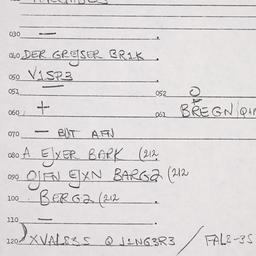 030 —
040 DER GREJSER BR1K
050 V1SP3
051 052 O
060 + 061 BREGN
070 — BUT AFN
080 A EJXER BARK (212
090 OJFN EJXN BARG2 (212
100 BERG2 (212
110 —
120 XVALS3S Q J1NG3R3 / FAL2-3S